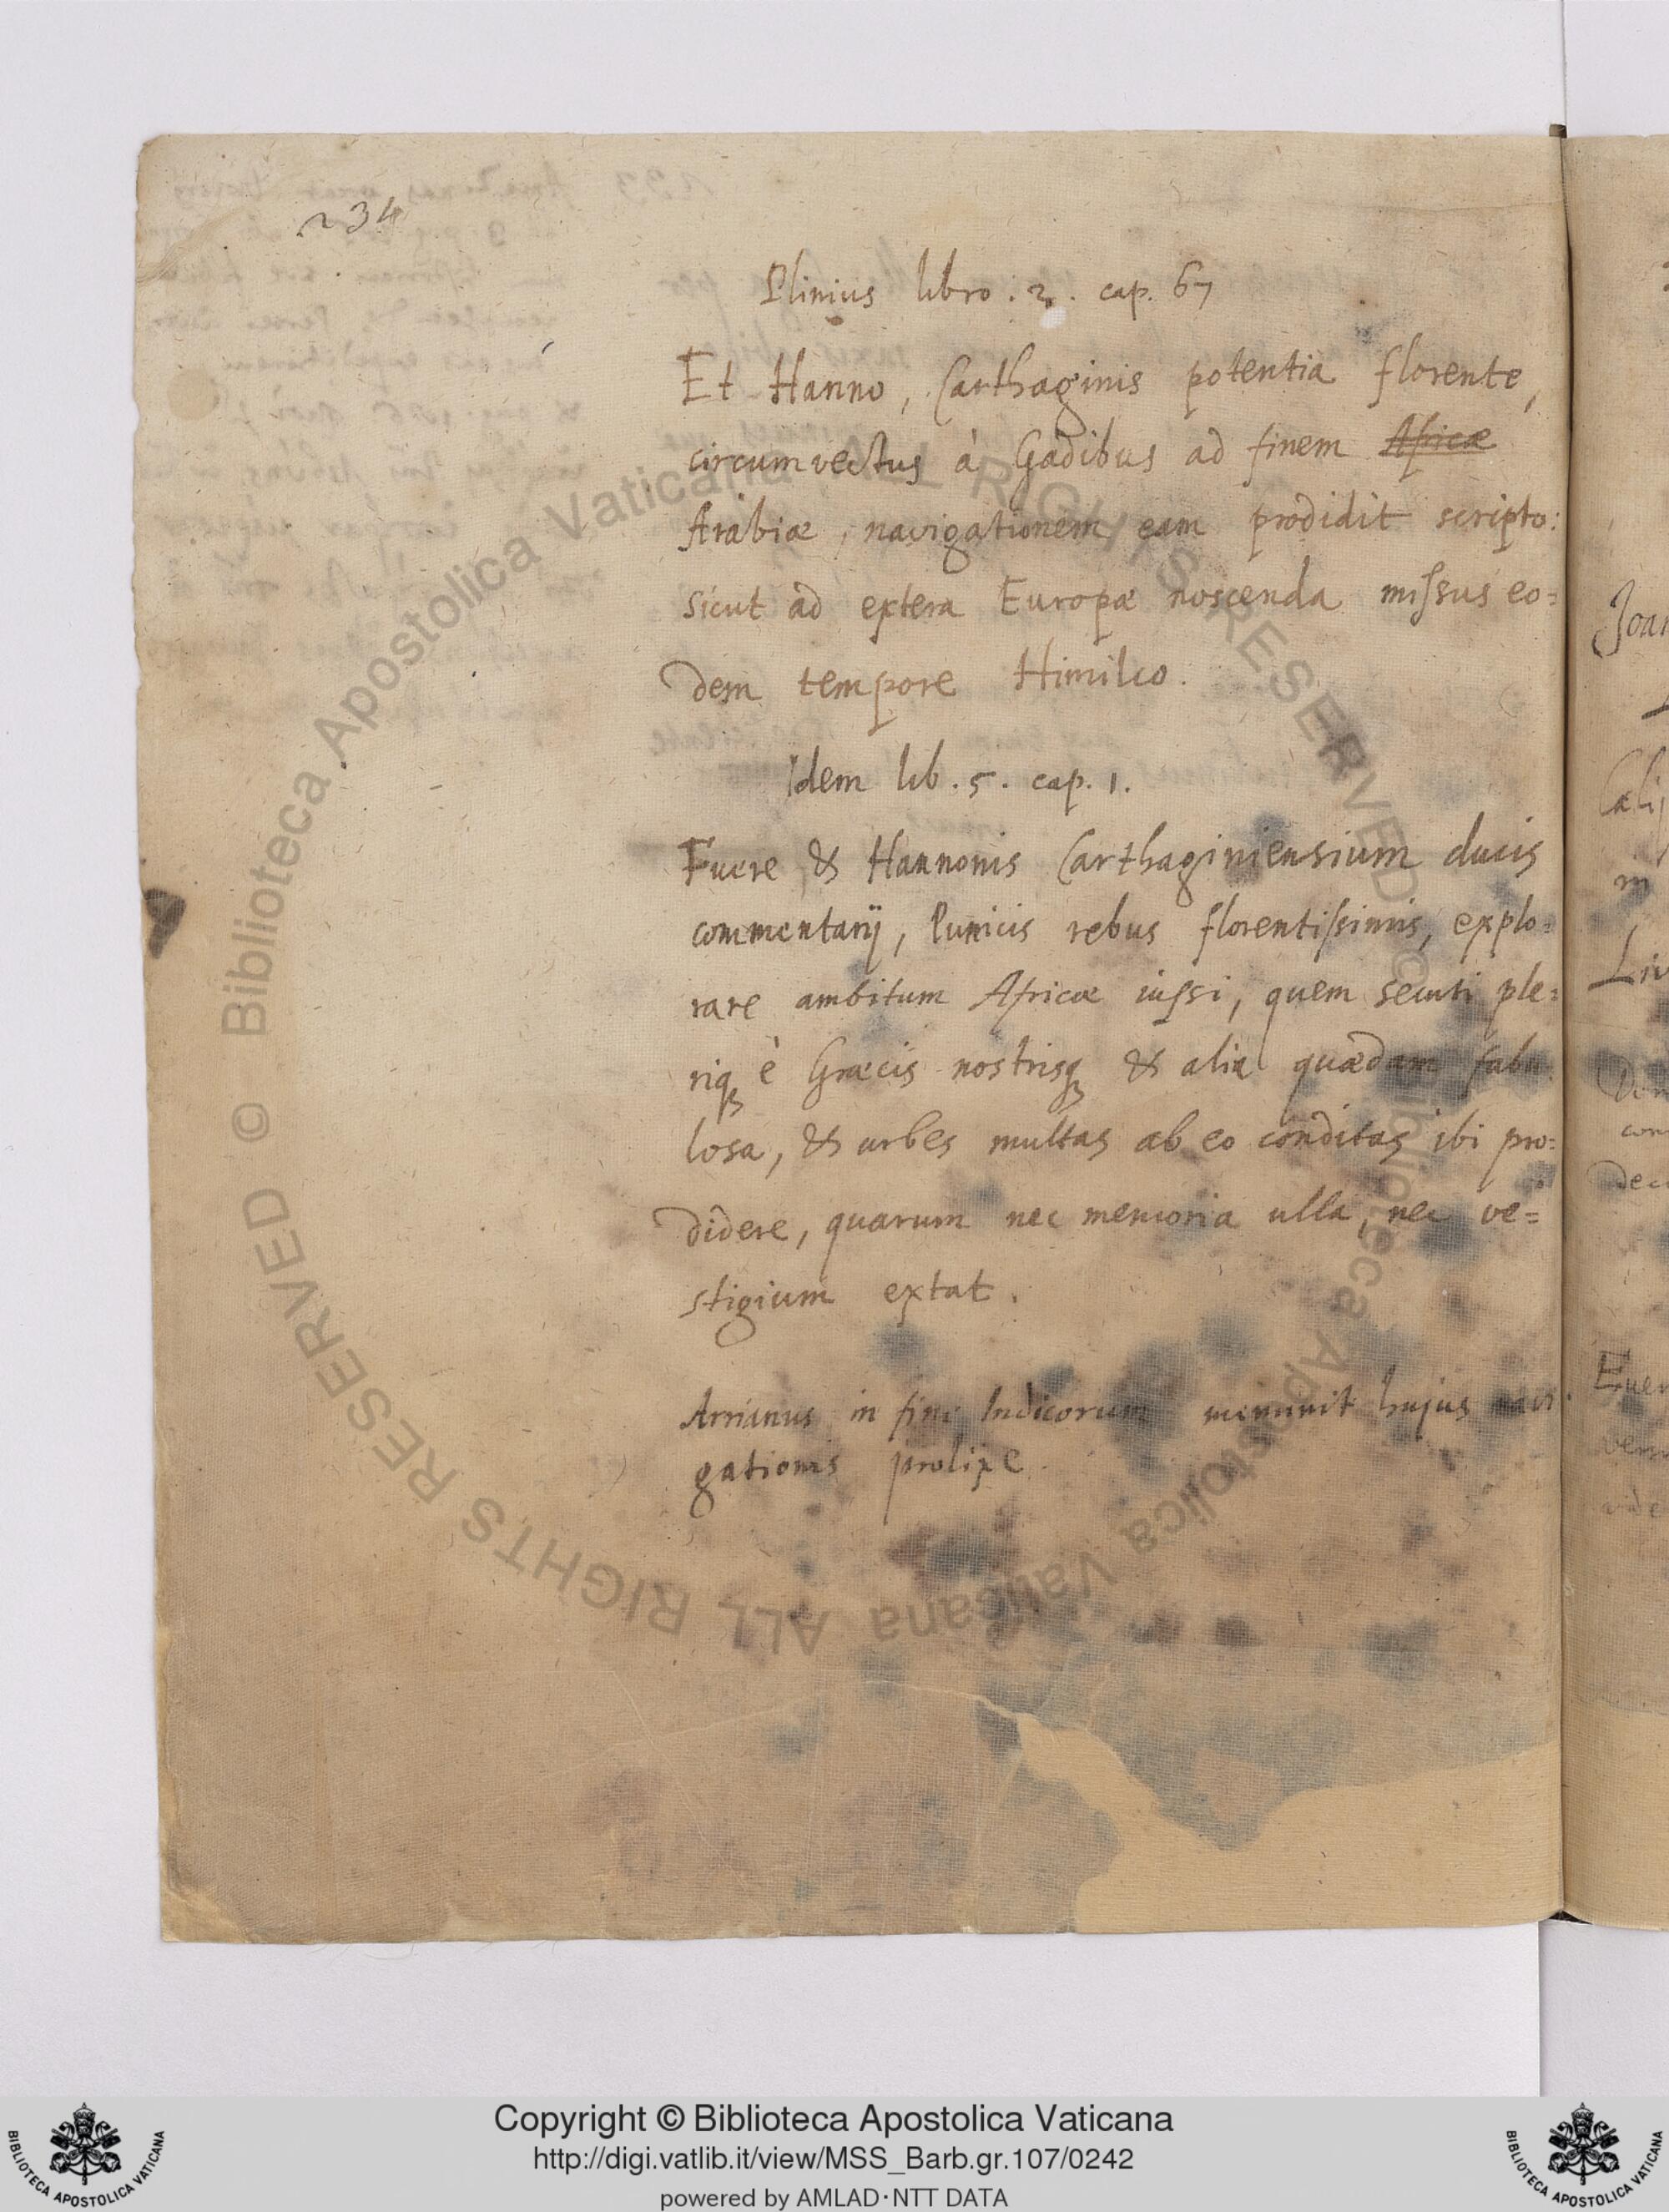 234
Plinius libro. 2. cap. 67
Et Hanno, Carthaginis potentia florente,
circumvectus à Gadibus ad finem Africæ
Arabiæ, navigationem eam prodidit scripto:
sicut ad extera Europæ noscenda missus eo=
dem tempore Himilco.
Idem lib. 5. cap. 1.
Fuere & Hannonis Carthaginiensium ducis
commentarij, Punicis rebus florentissimis, explo=
rare ambitum Africæ iussi, quem secuti ple=
riq è Græcis nostrisq & alia quædam fabu
losa, & urbes multas ab eo conditas ibi pro=
didere, quarum nec memoria ulla, nec ve=
stigium extat.
Arrianus in fine Indicorum meminit hujus navi
gationis prolixe.
Joan
Liv
© Biblioteca Apostolica Vaticana ALL RIGHTS RESERVED © Biblioteca Apostolica Vaticana ALL RIGHTS RESERVED
BIBLIOTECA APOSTOLICA VATICANA
Copyright © Biblioteca Apostolica Vaticana
http://digi.vatlib.it/view/MSS_Barb.gr.107/0242
powered by AMLAD·NTT DATA
BIBLIOTECA APOSTOLICA VATICANA